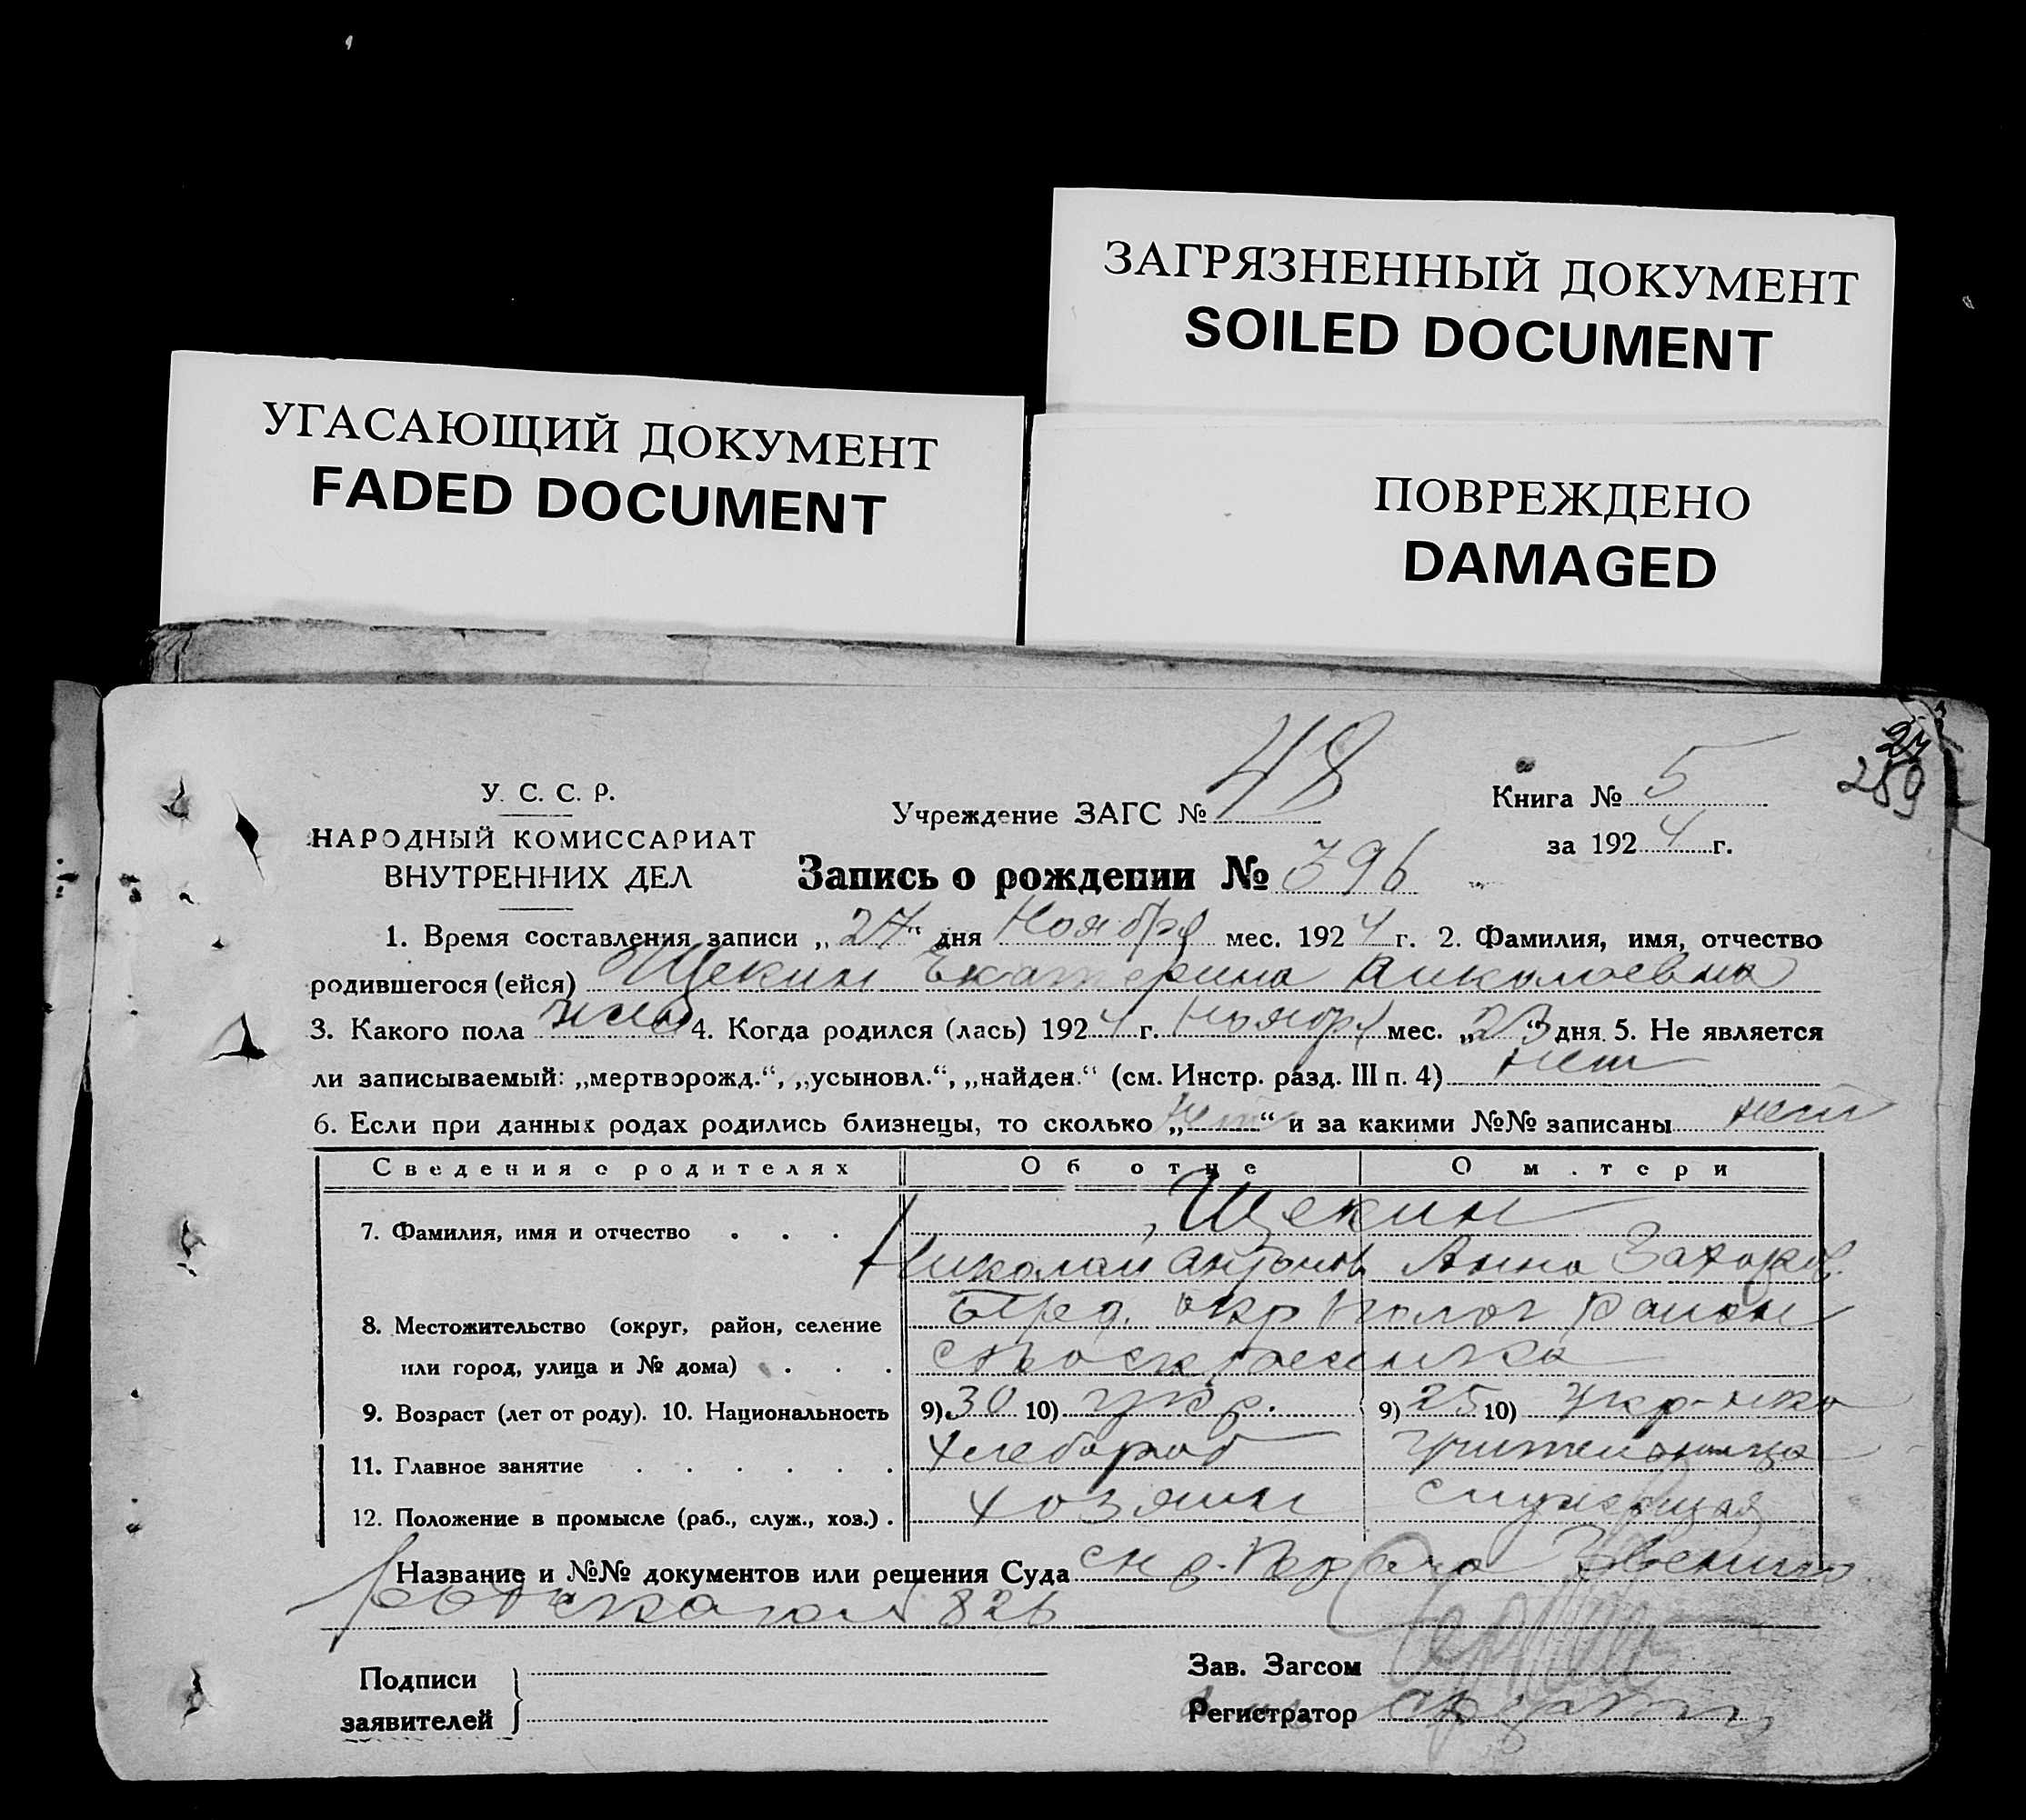 ЗАГРЯЗНЕННЫЙ ДОКУМЕНТ
SOILED DOCUMENT
УГАСАЮЩИЙ ДОКУМЕНТ
FADED DOCUMENT
ПОВРЕЖДЕНО
DAMAGED
259
У. С. С. Р.
НАРОДНЫЙ КОМИССАРИАТ
ВНУТРЕННИХ ДЕЛ
Учреждение ЗАГС № 48
Книга № 5
за 1924 г.
Запись о рождении № 396
1. Время составления записи „27“ дня Ноября мес. 1924 г. 2. Фамилия, имя, отчество
родившегося (ейся) Щекин Екатерина Николаевна
3. Какого пола жен 4. Когда родился (лась) 1924 г. Ноября мес. „23“ дня 5. Не является
ли записываемый: „мертворожд.“, „усыновл.“, „найден.“ (см. Инстр. разд. III п. 4) нет
6. Если при данных родах родились близнецы, то сколько „нет“ и за какими №№ записаны нет
Сведения о родителях Об отце О м.тери
7. Фамилия, имя и отчество . . . Щекин
Николай Антонов Анна Захаров.
8. Местожительство (округ, район, селение окр район
или город, улица и № дома) . . .
9. Возраст (лет от роду). 10. Национальность 9) 30 10) укр. 9) 25 10) укр-нка
11. Главное занятие . . . . . . Хлебороб Учительница
12. Положение в промысле (раб., служ., хоз.) . хозяин служащая
Название и №№ документов или решения Суда
826
Подписи
заявителей
Зав. Загсом
Регистратор